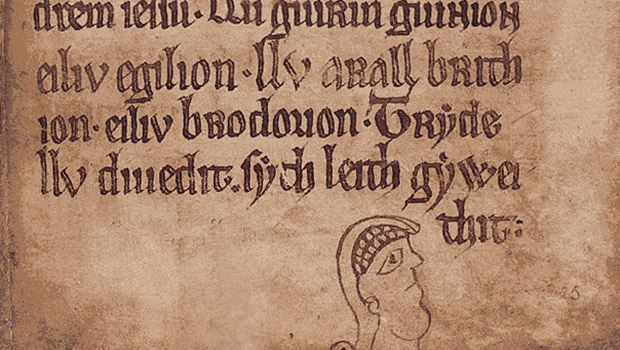 drem iessu. guirin guirion
eiliv egilion. llv arall brith
ion. eiliv brodorion. Tryde
llv diuedit. sych leith gywei
thit:
25